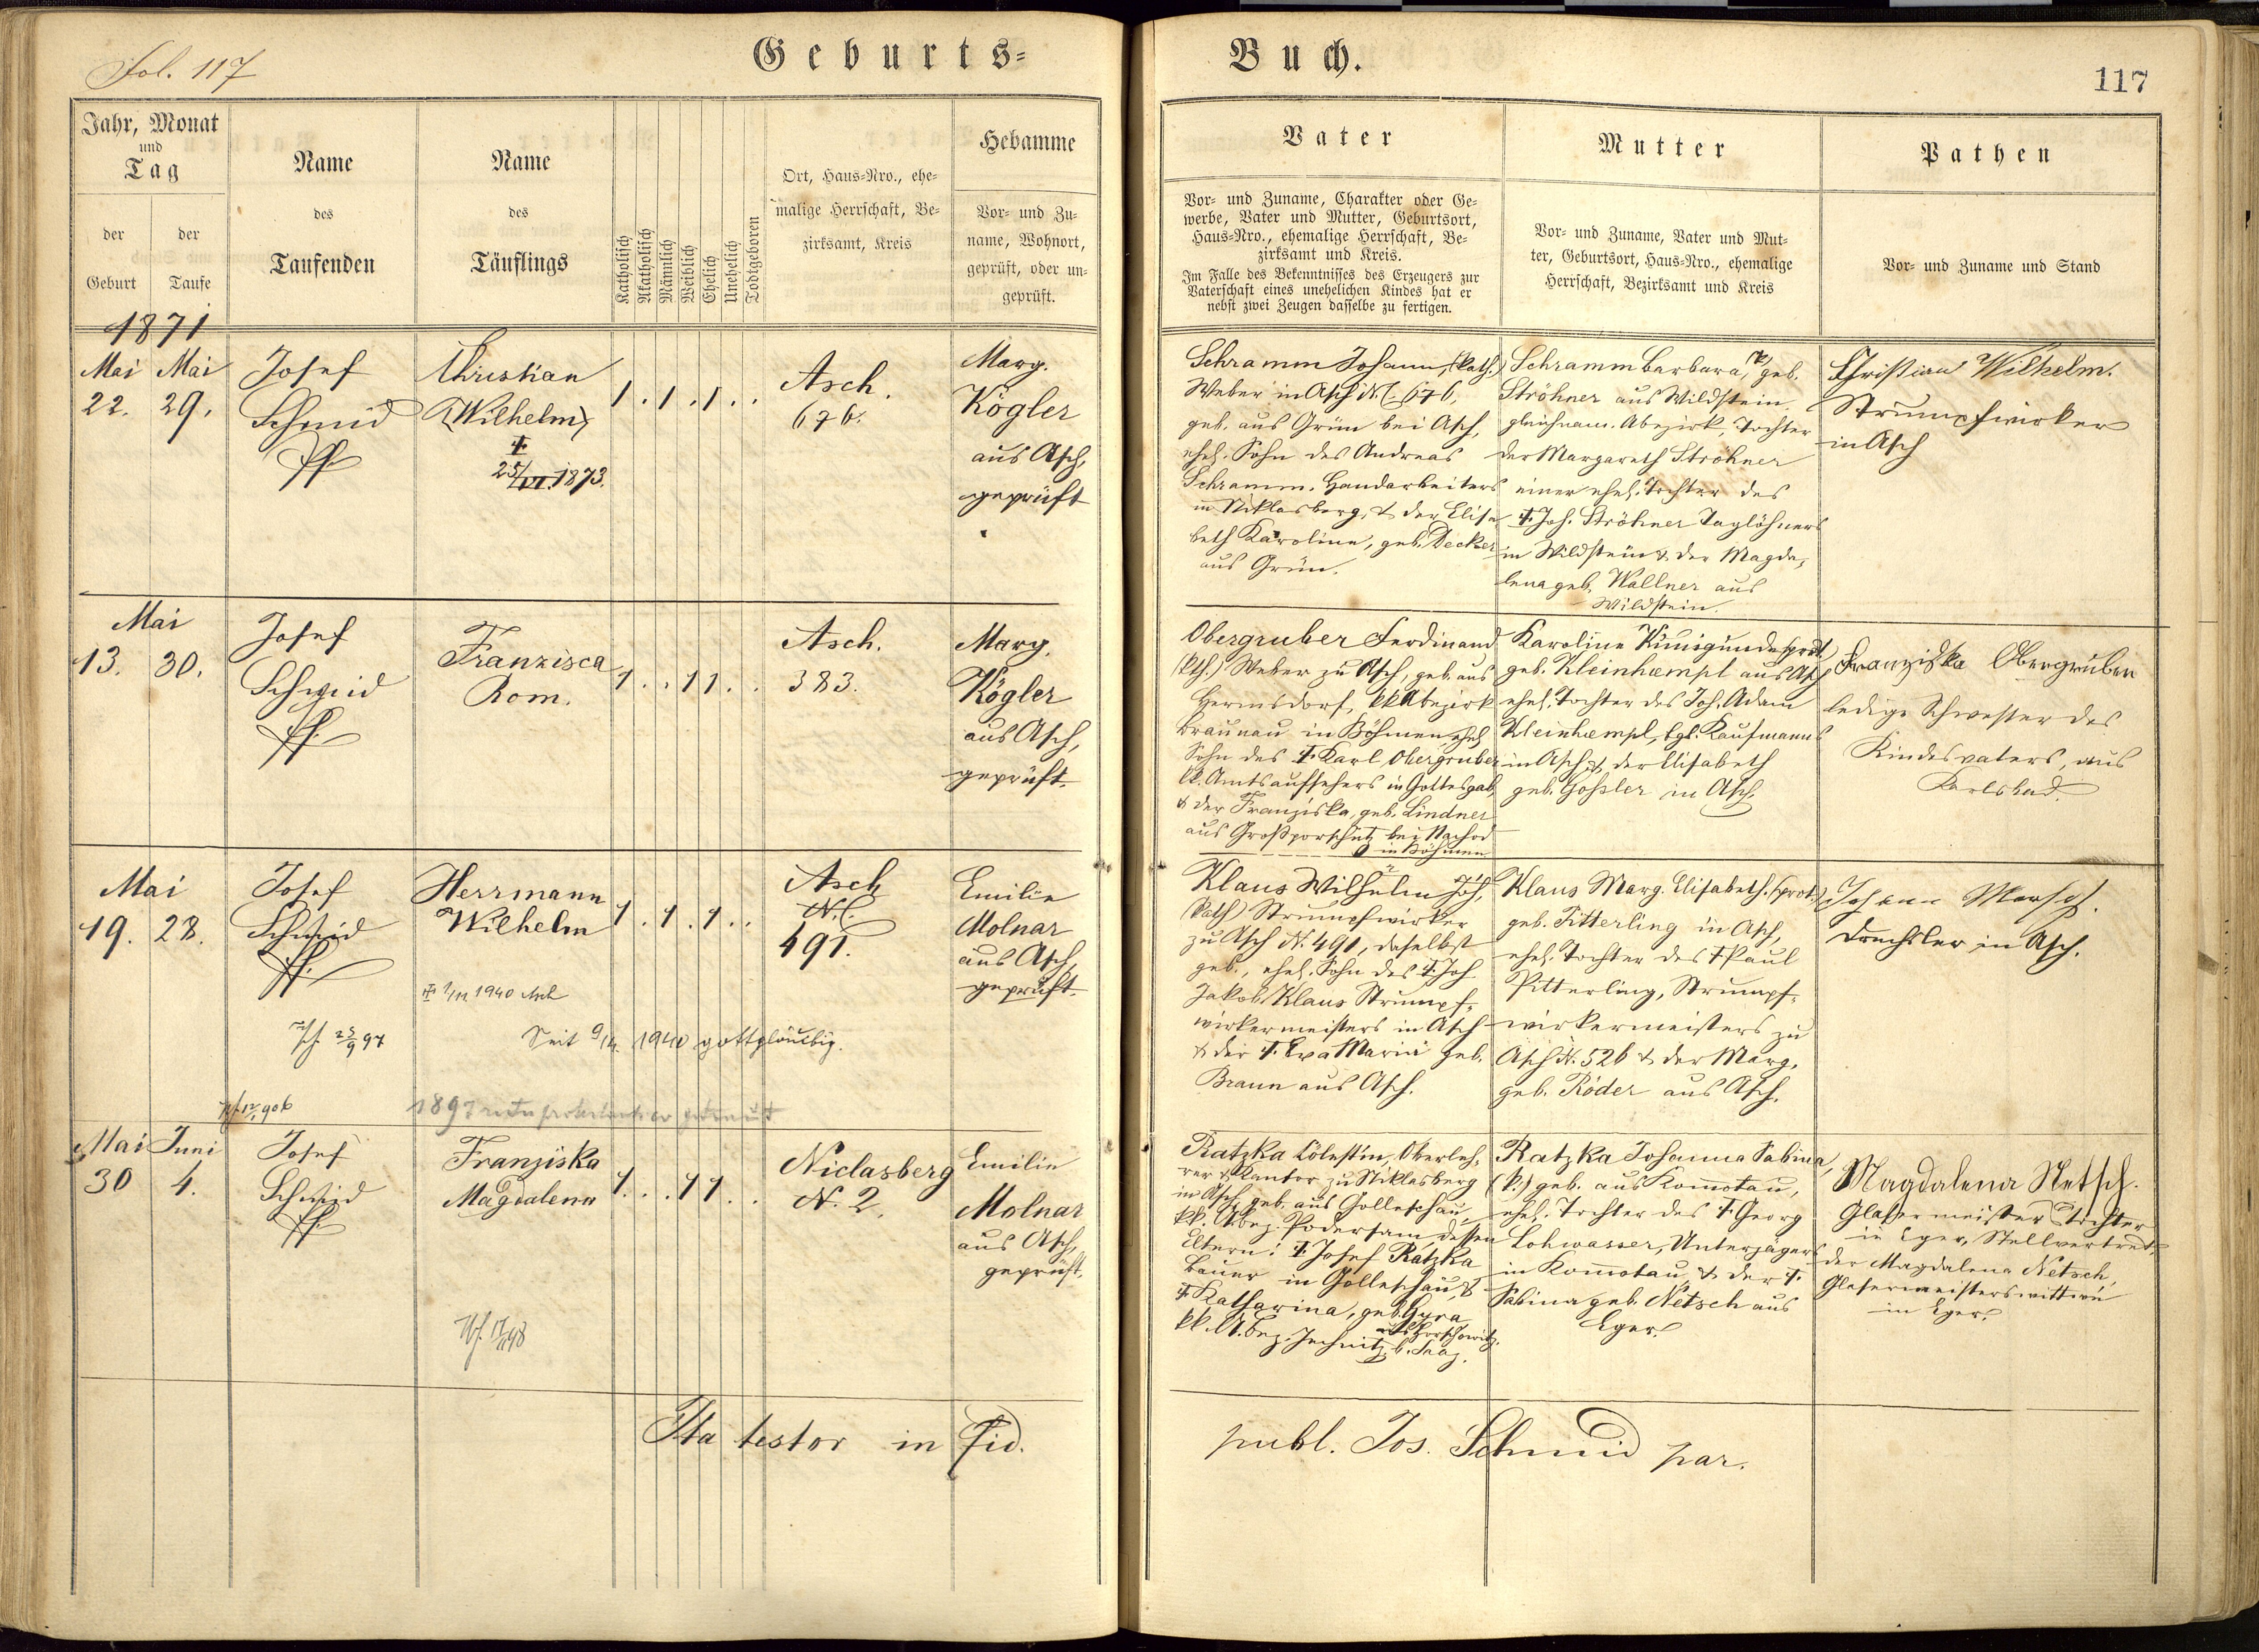 Fol. 117
Geburts-
Buch.
117
Jahr, Monat
und
Tag
der
Geburt
der
Taufe
Name
des
Taufenden
Name
des
Täuflings
Katholisch
Akatholisch
Männlich
Weiblich
Ehelich
Unehelich
Todtgeboren
Ort, Haus-Nro., ehe-
malige Herrschaft, Be-
zirksamt, Kreis
Hebamme
Vor- und Zu-
name, Wohnort,
geprüft, oder un-
geprüft.
Vater
Vor- und Zuname, Charakter oder Ge-
werbe, Vater und Mutter, Geburtsort,
Haus-Nro., ehemalige Herrschaft, Be-
zirksamt und Kreis.
Im Falle des Bekenntnisses des Erzeugers zur
Vaterschaft eines unehelichen Kindes hat er
nebst zwei Zeugen dasselbe zu fertigen.
Mutter
Vor- und Zuname, Vater und Mut-
ter, Geburtsort, Haus-Nro., ehemalige
Herrschaft, Bezirksamt und Kreis
Pathen
Vor- und Zuname und Stand
1871
Mai Mai
22. 29.
Josef
Schmid
Pfr.
Christian
(Wilhelm)
†
25/VI. 1873.
1 . 1 . 1 . .
Asch.
676.
Marg.
Kögler
aus Asch,
geprüft
Schramm Johann, (kath.)
Weber in Asch N.C. 676,
geb. aus Grün bei Asch,
ehel. Sohn des Andreas
Schramm, Handarbeiters
in Niklasberg, & der Elisa
beth Karoline, geb. Decker
aus Grün.
Schramm Barbara, (k) geb.
Ströhner aus Wildstein
gleichnam. Abezirk, Tochter
der Margareth Ströhner
einer ehel. Tochter des
† Joh. Ströhner Taglöhners
in Wildstein & der Magda-
lena geb. Wallner aus
Wildstein.
Christian Wilhelm.
Strumpfwirker
in Asch
Mai
13. 30.
Josef
Schmid
Pfr.
Franzisca
Rom.
1 . . 1 1 . .
Asch.
383.
Marg.
Kögler
aus Asch,
geprüft.
Obergruber Ferdinand
(kth.) Weber zu Asch, geb. aus
Hermsdorf, kk Abezirk
Braunau in Böhmen, ehel.
Sohn des † Karl Obergruber
kk. Amtsaufsehers in Gottesgab,
& der Franziska, geb. Lindner
aus Großporschitz bei Nachod
in Böhmen
Karoline Kunigunde (prot.)
geb. Kleinhempl aus Asch
ehel. Tochter des Joh. Adam
Kleinhempl, bgl. Kaufmanns
in Asch, & der Elisabeth
geb. Gossler in Asch.
Franziska Obergruber
ledige Schwester des
Kindesvaters, aus
Karlsbad.
Mai
19. 28.
Josef
Schmid
Pfr.
Herrmann
Wilhelm
1 . 1 . 1 . .
Asch
N.C.
491.
Emilie
Molnar
aus Asch,
geprüft.
† 1/11 1940 Asch
25/9 97
Seit 9/4. 1940 gottgläubig.
Klaus Wilhelm Joh.,
(kath) Strumpfwirker
zu Asch N. 491, daselbst
geb., ehel. Sohn des † Joh
Jakob Klaus Strumpf-
wirkermeisters in Asch
& der † Eva Maria geb.
Braun aus Asch.
Klaus Marg. Elisabeth, (prot.)
geb. Pitterling in Asch,
ehel. Tochter des † Paul
Pitterling, Strumpf-
wirkermeisters zu
Asch N. 526 & der Marg.
geb. Röder aus Asch.
Johann
Drechsler in Asch.
1897 ritu protestantico getraut
Mai Juni
30 4.
Josef
Schmid
Pfr.
Franziska
Magdalena
1 . . 1 1 . .
Niclasberg
N. 2.
Emilie
Molnar
aus Asch,
geprüft.
Ratzka Cölestin, Oberleh-
rer & Kantor zu Niklasberg
in Asch, geb. aus Golleschau,
kk. Abez. Podersam, dessen
Eltern: † Josef Ratzka
Bauer in Golleschau, &
† Katharina, geb. Gyra
aus Horschowitz,
kk. A. bez. Jechnitz b. Saaz.
Ratzka Johanna Sabina,
(k.) geb. aus Komotau,
ehel. Tochter des † Georg
Lohwasser, Unterjägers
in Komotau, & der †
Sabina geb. Netsch aus
Eger.
Magdalena Netsch.
Glasermeisters Tochter
in Eger, Stellvertret.
der Magdalena Netsch,
Glasermeisterswittwe
in Eger.
Ita testor in fid.
publ. Jos. Schmid par.